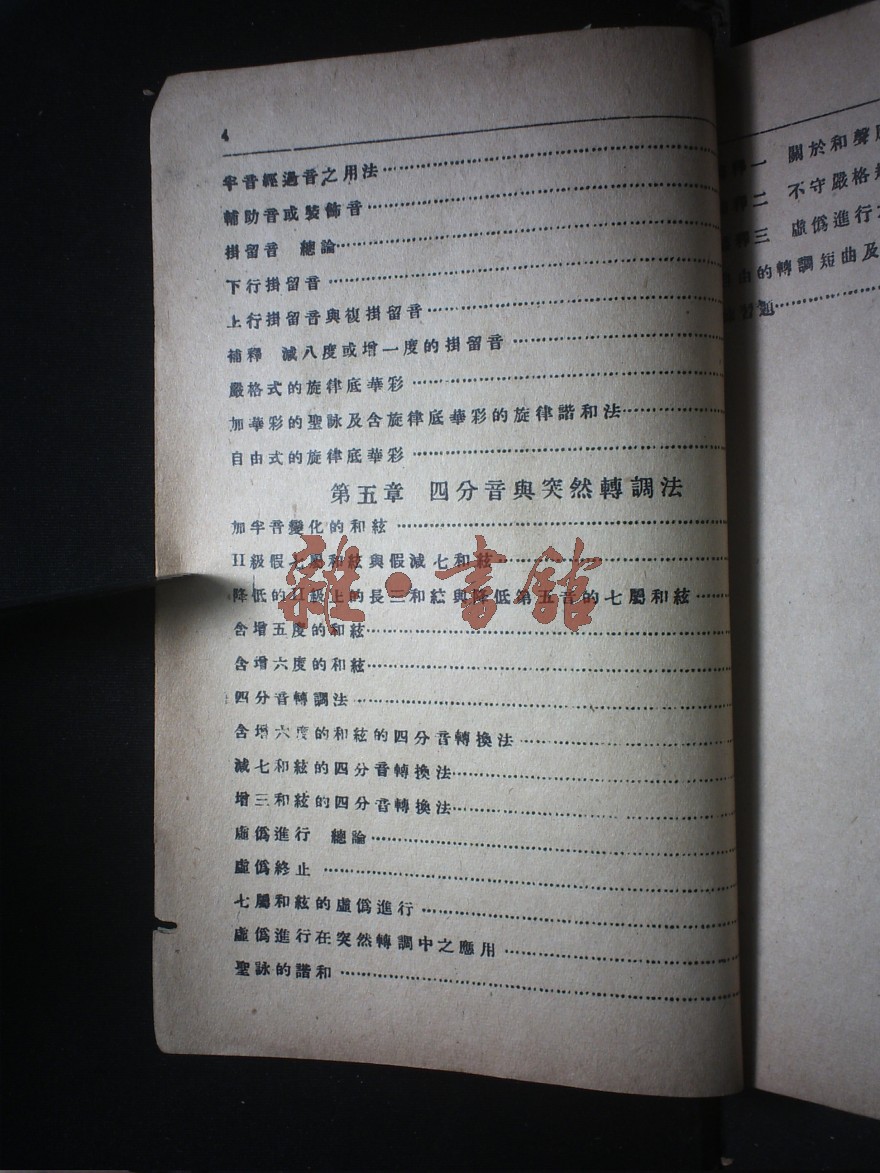 4
半音經過音之用法
輔助音或裝飾音
掛留音 總論
下行掛留音
上行掛留音與複掛留音
補釋 減八度或增一度的掛留音
嚴格式的旋律底華彩
加華彩的聖詠及含旋律底華彩的旋律諧和法
自由式的旋律底華彩
第五章 四分音與突然轉調法
加半音變化的和絃
II級假七屬和絃與假減七和絃
降低的II級上的長三和絃與降低第五音的七屬和絃
含增五度的和絃
含增六度的和絃
四分音轉調法
含增六度的和絃的四分音轉換法
減七和絃的四分音轉換法
增三和絃的四分音轉換法
虛僞進行 總論
虛僞終止
七屬和絃的虛僞進行
虛僞進行在突然轉調中之應用
聖詠的諧和
一 關於和聲
二 不守嚴格
三 虛僞進行
的轉調短曲及
題
雜·書館